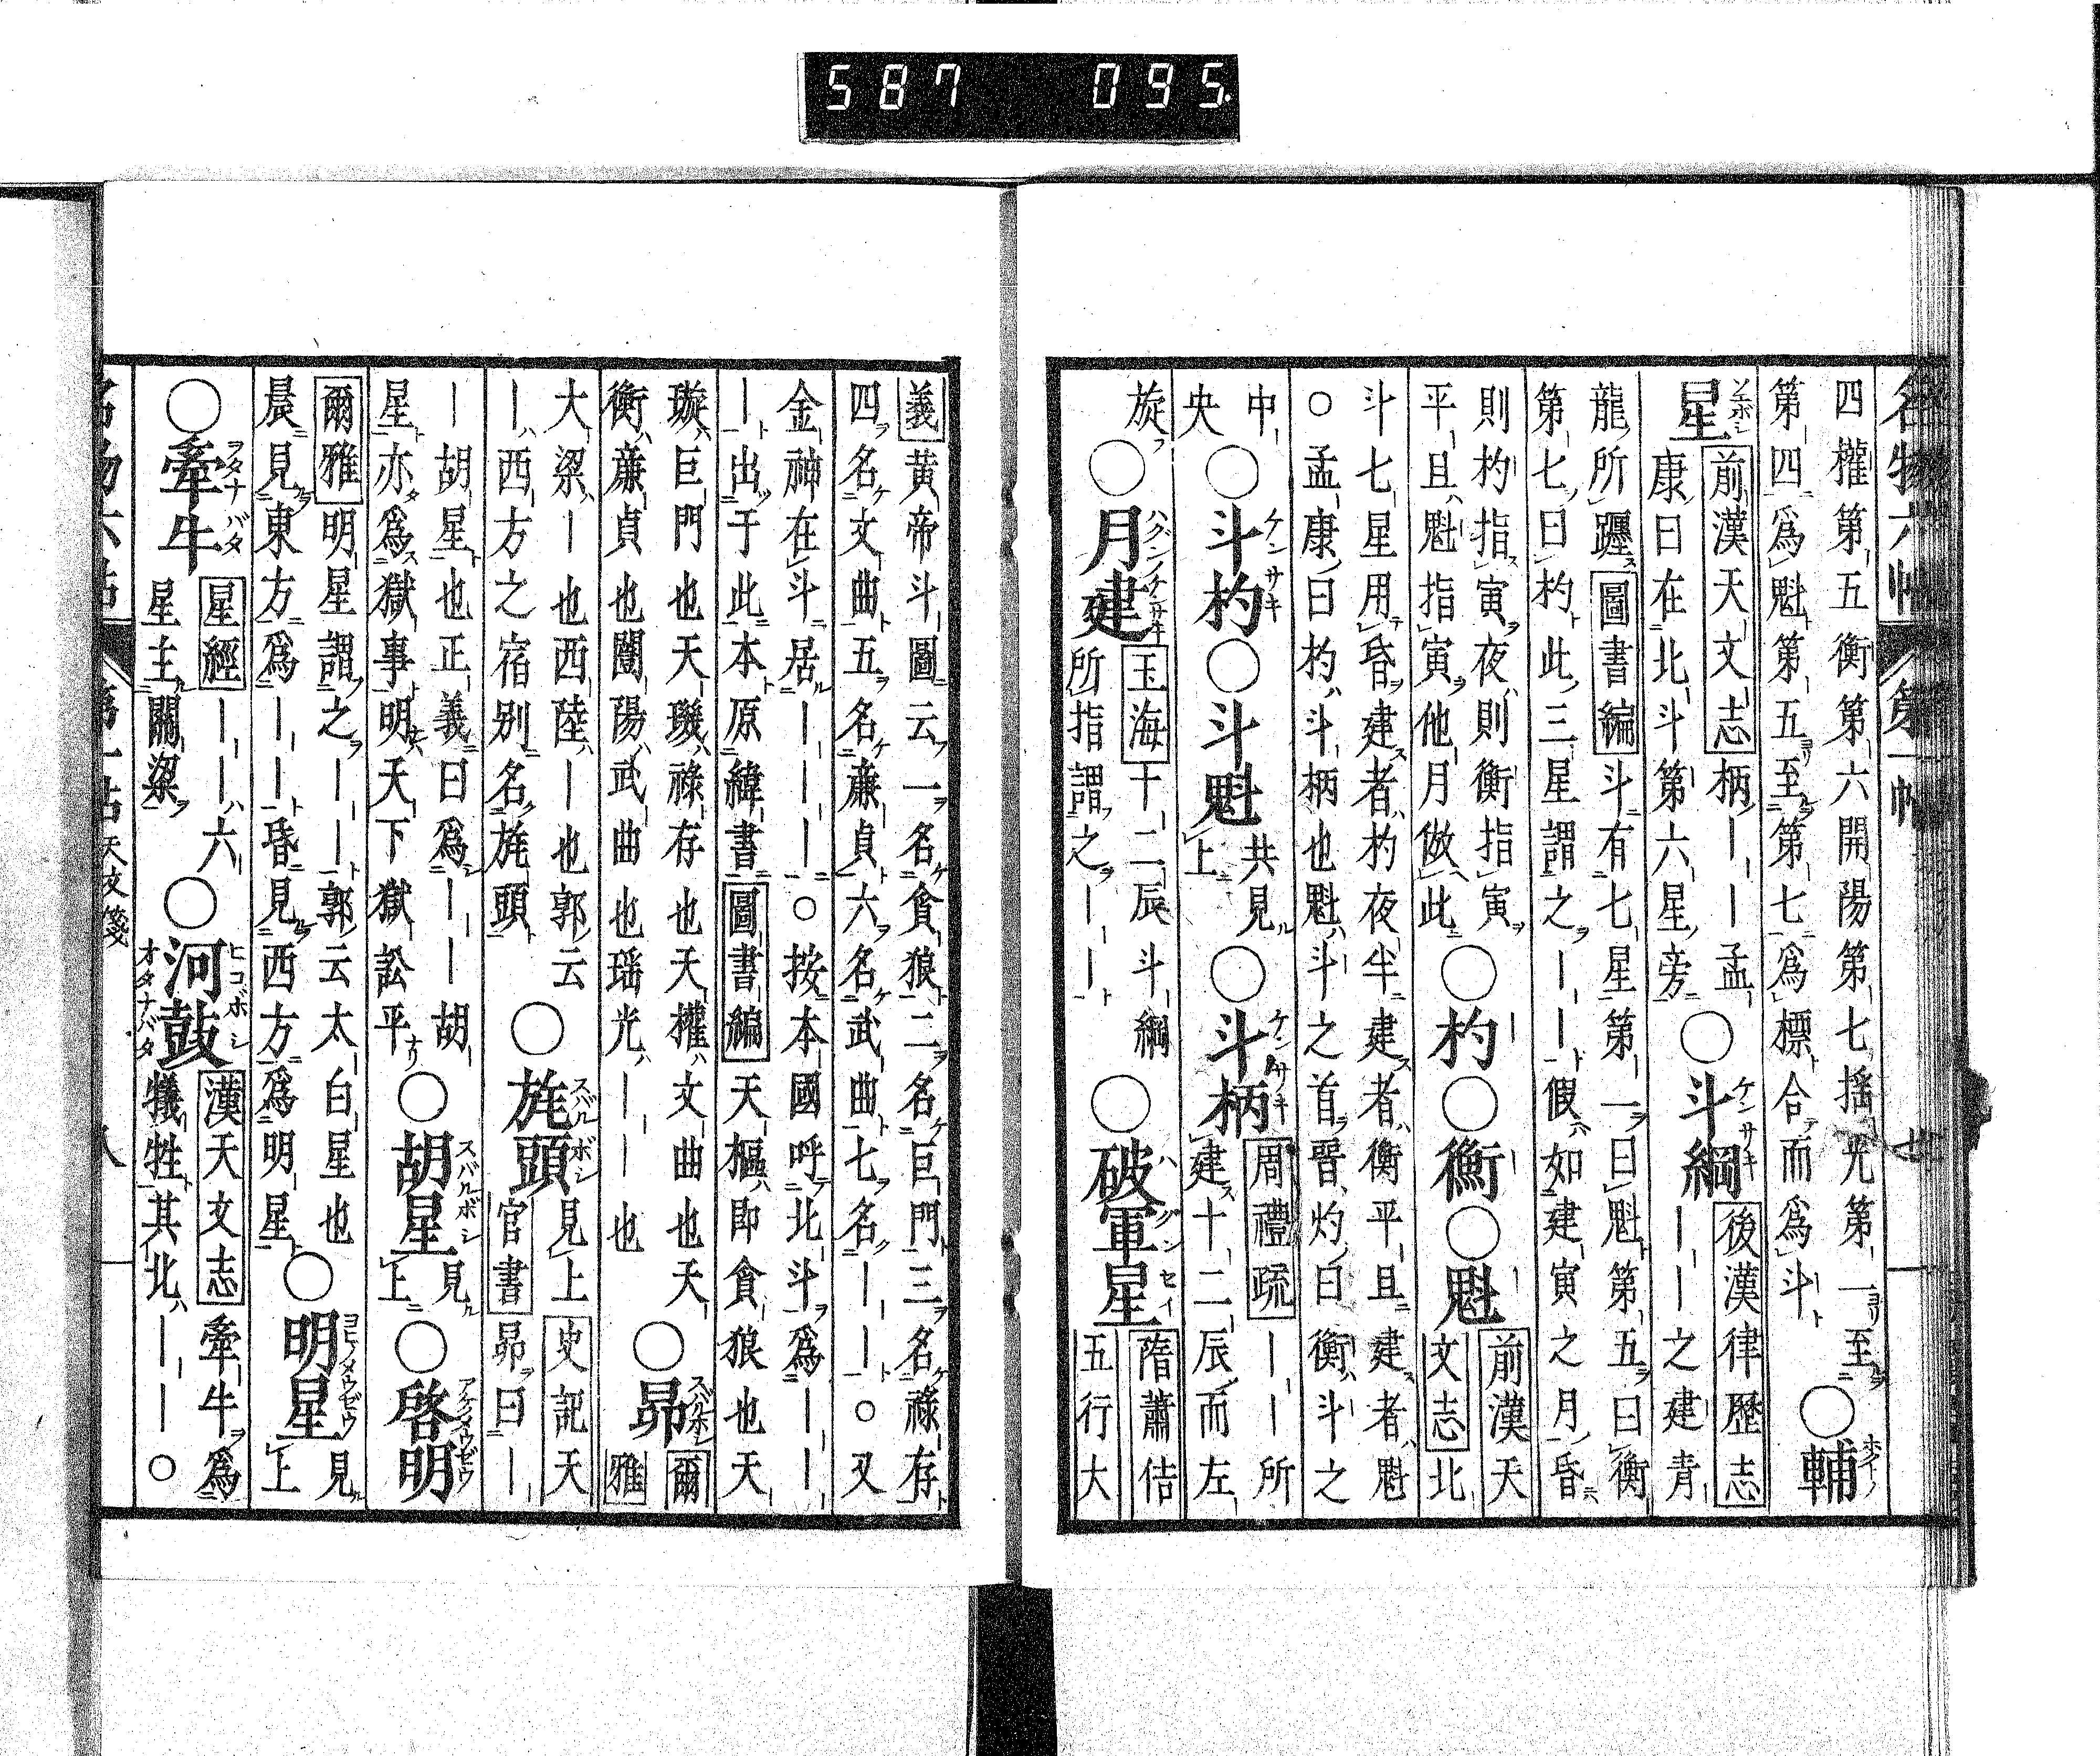 587 095.
名物六帖 第一帖 七
四權第五衡第六開陽第七搖光第一至
第四爲魁第五至第七爲標合而爲斗
○輔
星
前漢天文志柄——孟
康曰在北斗第六星旁
○斗綱
後漢律歷志
——之建青
龍所躔圖書編斗有七星第一曰魁第五曰衡
第七曰杓此三星謂之——假如建寅之月昏
則杓指寅夜則衡指寅
平且魁指寅他月倣此
○杓○衡○魁
前漢天
文志北
斗七星用昏建者杓夜半建者衡平且建者魁
○孟康曰杓斗柄也魁斗之首晋灼曰衡斗之
中
央
○斗杓○斗魁
共見
上
○斗柄
周禮疏——所
建十二辰而左
旋
○月建
玉海十二辰斗綱
所指謂之——
○破軍星
隋蕭佶
五行大
義黄帝斗圖云一名貪狼二名巨門三名祿存
四名文曲五名廉貞六名武曲七名——○又
金神在斗居———○按本國呼北斗爲——
—出于此本原緯書圖書編天樞即貪狼也天
璇巨門也天璣祿存也天權文曲也天
衡廉貞也闓陽武曲也瑶光———也
○昴
爾
雅
大梁—也西陸—也郭云
—西方之宿別名旄頭
○旄頭
見上史記天
官書昴曰—
—胡星也正義曰爲——胡
星亦爲獄事明天下獄訟平
○胡星
見
上
○啓明
爾雅明星謂之——郭云太白星也
晨見東方爲——昏見西方爲明星
○明星
見
上
○牽牛
星經——六
星主關梁
○河鼓
漢天文志牽牛爲
犠牲其北——○
名物六帖 第一帖 天文箋 八